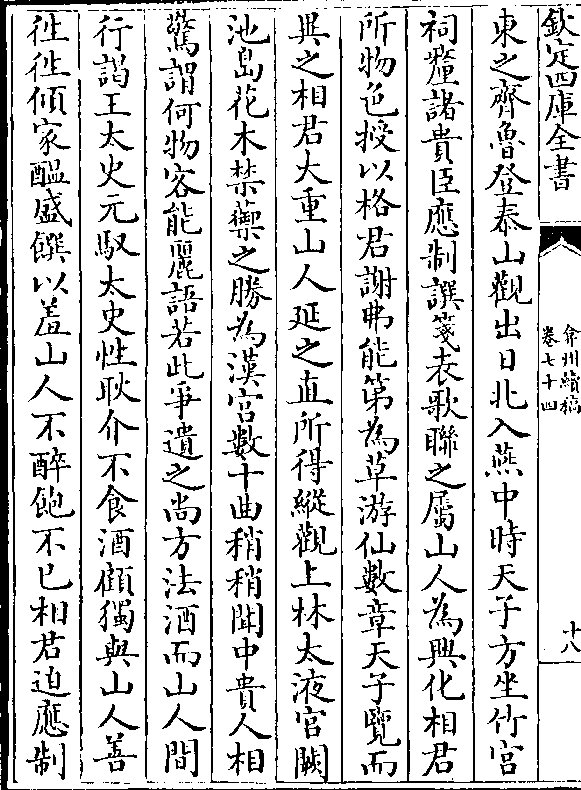 欽定四庫全書
弇州續稿
卷七十四
十八
東之齊魯登泰山觀出日北入燕中時天子方坐竹宫
祠釐諸貴臣應制譔箋表歌聯之屬山人為興化相君
所物色授以格君謝弗能第為草游仙數章天子覽而
異之相君大重山人延之直所得縱觀上林太液宫闕
池島花木禁蘌之勝為漢宫數十曲稍稍聞中貴人相
驚謂何物客能麗語若此爭遺之尚方法酒而山人間
行謁王太史元馭太史性耿介不食酒顧獨與山人善
徃徃傾家醖盛饌以羞山人不醉飽不已相君迫應制